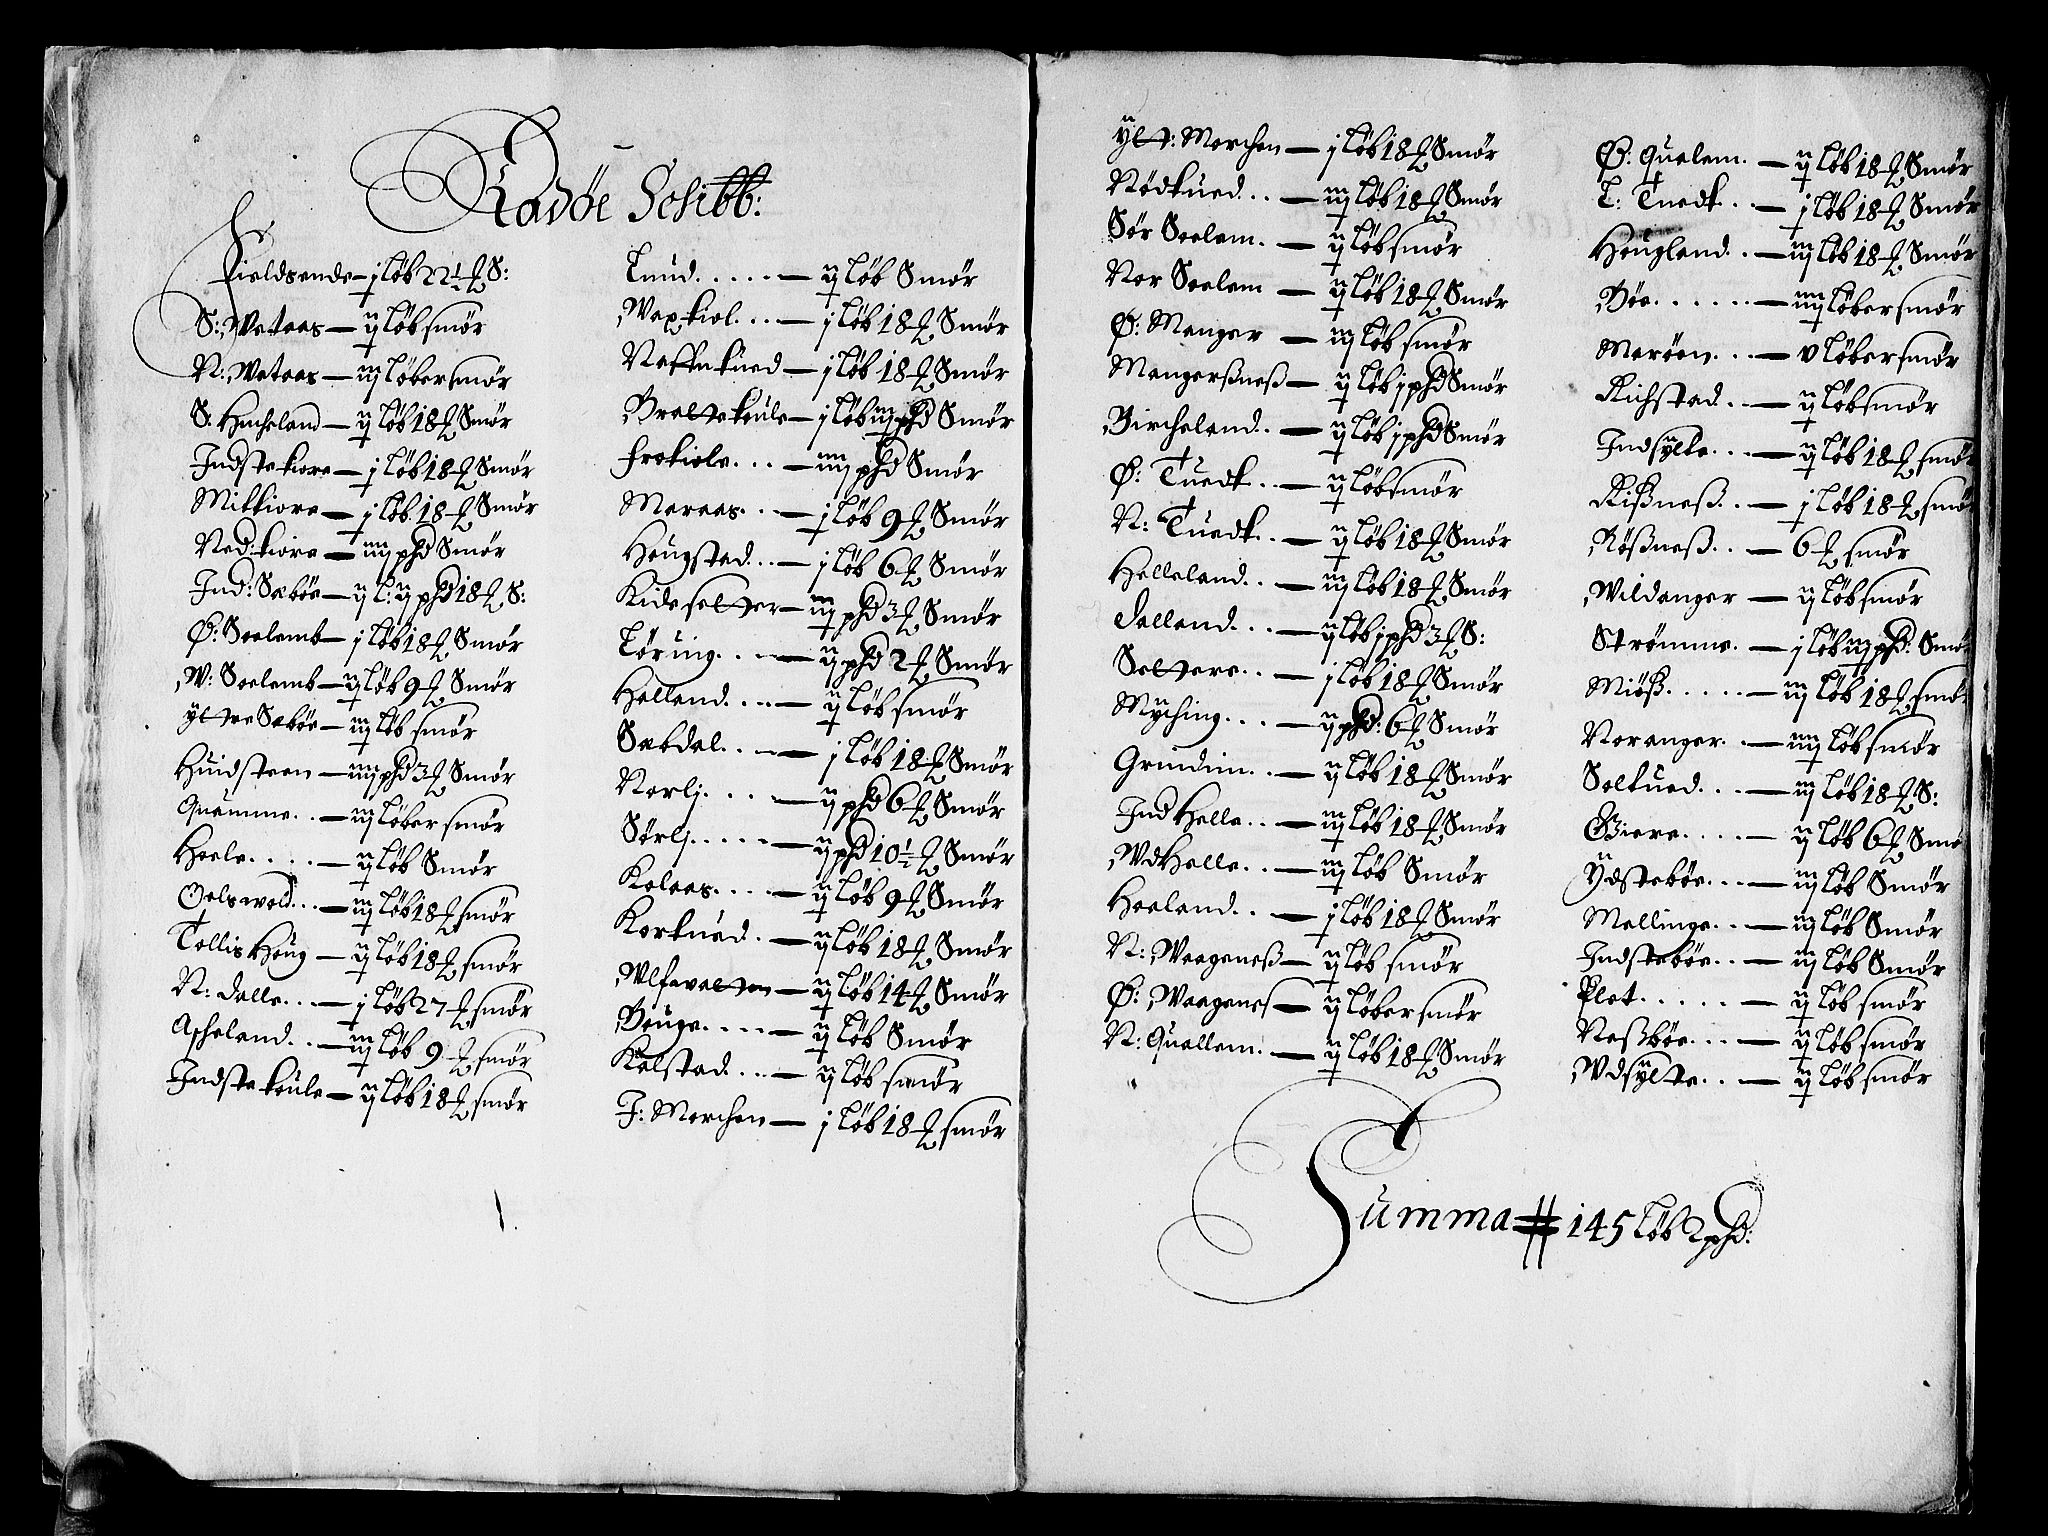 Radøe Schibb:
Fieldsende — j løb 22½ ℔ S:
S: Wataas — ij løb smör
N: Wataas — iij løber smör
S. Hucheland — ij løb 18 ℔ Smör
Indstekiore — j løb 18 ℔ Smör
Mitkiore — j løb 18 ℔ Smör
Ned: kiore — iiij phd Smör
Ind: Sæbøe — ij l: ij phd 18 ℔ S:
Ø: Soelemb — j løb 18 ℔ Smör
W: Soelemb — ij løb 9 ℔ Smör
ÿttre Sæbøe — iij løb smör
Huidsteen — iiij phd 3 ℔ Smör
Quamme . . — iij løber smör
Hoele . . . . — ij løb Smör
Oelswold . . . — iij løb 18 ℔ smör
Tollishoug — ij løb 18 ℔ smör
N: dalle . . . — j løb 27 ℔ smör
Ascheland . . — iij løb 9 ℔ smör
Indstekoule — ij løb 18 ℔ smör
Lund . . . . . — ij løb Smör
Waxkiol . . . — j løb 18 ℔ Smör
Neffukued — j løb 18 ℔ Smör
Brattekoule — j løb iij phd Smör
Frokiole . . . — iiij phd Smör
Maraas . . — j løb 9 ℔ Smör
Hougstad . . . — j løb 6 ℔ Smör
Kidesetter — iij phd 3 ℔ Smör
Tøring . . . — ij phd 2 ℔ Smör
Helland . . . . — ij løb smör
Sæbdal . . . — j løb 18 ℔ Smör
Norlj . . . . — ij phd 6 ℔ Smör
Sørlj . . . . . — ij phd 10½ ℔ Smör
Kolaas . . . . — ij løb 9 ℔ Smör
Korkued . — ij løb 18 ℔ Smör
Wlfuvatten — ij løb 14 ℔ Smör
Bouge . . . . . — ij løb Smör
Kalstad . . . — ij løb smör
J: Morchen — j løb 18 ℔ smör
ÿtt: Morchen — j løb 18 ℔ Smör
Nödkued . . . — iij løb 18 ℔ Smör
Sør Soelem . — ij løb smör
Nor Soelem — ij løb 18 ℔ Smör
Ø: Manger — iij løb smör
Mangersneß — ij løb j phd Smör
Bircheland . . — ij løb j phd Smör
Ø: Tuedt . . — ij løb smör
N: Tuedt . . — ij løb 18 ℔ Smör
Helleland . . — iij løb 18 ℔ Smör
dalland . . . — ij løb j phd 3 ℔ S:
Settere . . — j løb 18 ℔ Smör
Mÿching . . . — ij phd: 6 ℔ Smör
Grindim . . — ij løb 18 ℔ Smör
Ind Halle . . — iij løb 18 ℔ Smör
Wd Halle . . — iij løb Smör
Hoeland . . — j løb 18 ℔ Smör
N: Waageneß — ij løb smör
Ø: Waagenes — ij løber smör
N: Quallem . — ij løb 18 ℔ Smör
Ø: Qualem . — ij løb 18 ℔ Smör
L: Tuedt . . — j løb 18 ℔ Smör
Hougland . . — iij løb 18 ℔ Smör
Bøe . . . . . . — iiij løber smör
Marøen . . . — v løber smör
Richstad . . — ij løb smör
Indsÿlte . . . — ij løb 18 ℔ smör
Rißneß . . — j løb 18 ℔ smö
Røßneß . . — 6 ℔ smör
Wildanger — ij løb smör
Strømme . — j løb iij phd: Smö
Miöß . . . . . — iij løb 18 ℔ smö
Noranger . . — iiij løb smör
Solkued . . . — iij løb 18 ℔ S:
Giere . . . . — ij løb 6 ℔ Smö
Ÿdstebøe . . . — iij løb Smör
Mellinge . . — iij løb Smör
Indstebøe . . — iij løb Smör
Plet . . . . . — ij løb smör
Neßbøe . . . — ij løb smör
Wdsÿlte . . — ij løb smör
Summa # 145 løb 2 phd: